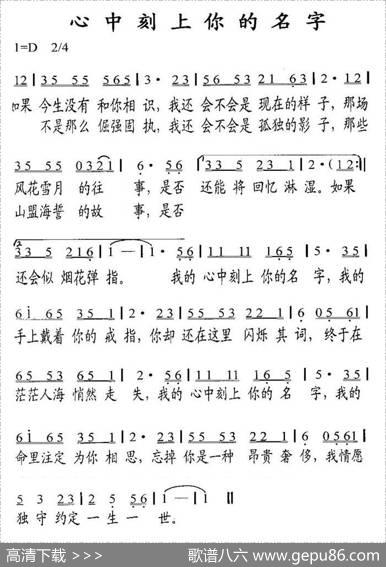 心中刻上你的名字
1=D 2/4
12 | 35 55 565 | 3· 23 | 56 53 21 63 | 2· 12 |
如果 今生没有 和你相 识，我还 会不会是 现在的样 子，那场
不是那么 倔强固 执，我还 会不会是 孤独的影 子，那些
35 55 0321 | 6· 56 | 33 5 23 1 | 2·(12:||
风花雪月 的往 事，是否 还能 将 回忆 淋 湿。如果
山盟海誓 的故 事，是否
33 5 216 | 1 — | 1· 56 | 11 11 165 | 5· 35 |
还会似 烟花弹 指。 我的 心中刻上 你的名 字，我的
6i 65 35 1 | 2· 23 | 55 53 22 1 | 6 0561 |
手上戴着 你的 戒 指，你却 还在这里 闪烁 其 词，终于在
65 53 35 1 | 2· 56 | 11 11 16 5 | 5· 35 |
茫茫人海 悄然 走 失，我的 心中刻上 你的 名 字，我的
6i 65 35 1 | 2· 23 | 55 53 22 1 | 6 0561 |
命里注定 为你 相 思，忘掉 你是一种 昂贵 奢 侈，我情愿
5 3 23 | 2 5 56 | 1 — | 1 — ||
独 守 约定 一 生 一 世。
高清下载 >>> 歌谱八六 www.gepu86.com